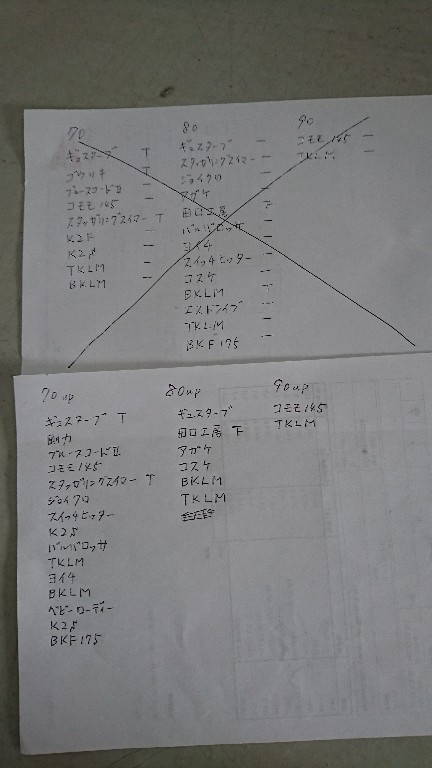 70
ギュスターブ T
ゴウリキ T
ブルースコードⅡ ー
コモモ145 ー
スタッガリングスイマー T
K2F ー
K2♂ ー
TKLM ー
BKLM ー
80
ギュスターブ ー
スタッガリングスイマー ー
ジョイクロ ー
アカケ ー
田口工房 下
バルバロッサ ー
ヨイチ ー
スイッチヒッター ー
コスケ ー
BKLM T
エストライブ ー
TKLM ー
BKF175 ー
90
コモモ145 ー
TKLM ー
70up
ギュスターブ T
剛力
ブルースコードⅡ
コモモ145
スタッガリングスイマー T
ジョイクロ
スイッチヒッター
K2♂
バルバロッサ
TKLM
ヨイチ
BKLM
ベビーローディー
K2♂
BKF175
80up
ギュスターブ
田口工房 下
アカケ
コスケ
BKLM
TKLM
90up
コモモ145
TKLM